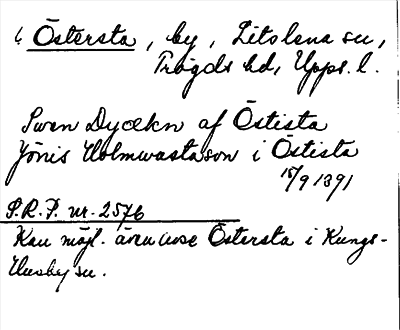 Östersta, by, Litslena sn,
Trögds hd, Upps. l.
Swen Dyækn af Östista
Jönis Holmwastason i Östista
15/9 1391
S.R.P. nr. 2576
Kan möjl. även avse Östersta i Kungs-
Husby sn.